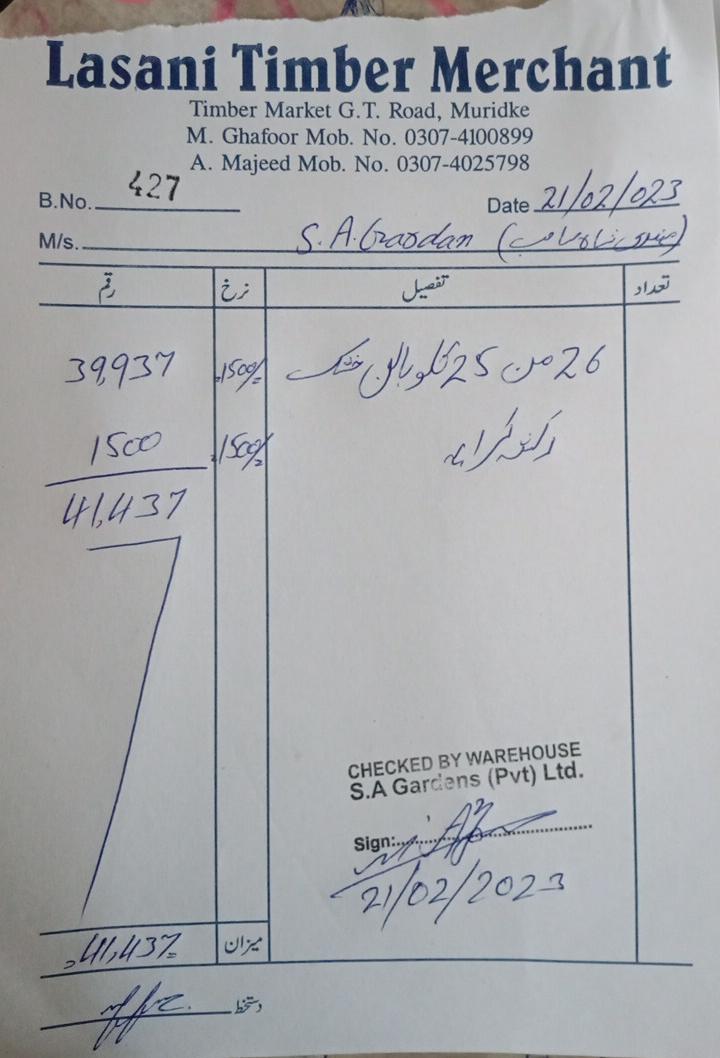 Lasani Timber Merchant
Timber Market G.T. Road, Muridke
M. Ghafoor Mob. No. 0307-4100899
A. Majeed Mob. No. 0307-4025798
B.No. 427 Date 21/02/023
M/s. S.A. Gardan
تعداد تفصیل نرخ رقم
26 من 25 کلو بالن خشک 1500/= 39,937
رکشہ کرایہ 1500/= 1500
41,437
CHECKED BY WAREHOUSE
S.A Gardens (Pvt) Ltd.
Sign:
21/02/2023
میزان 41,437=
دستخط